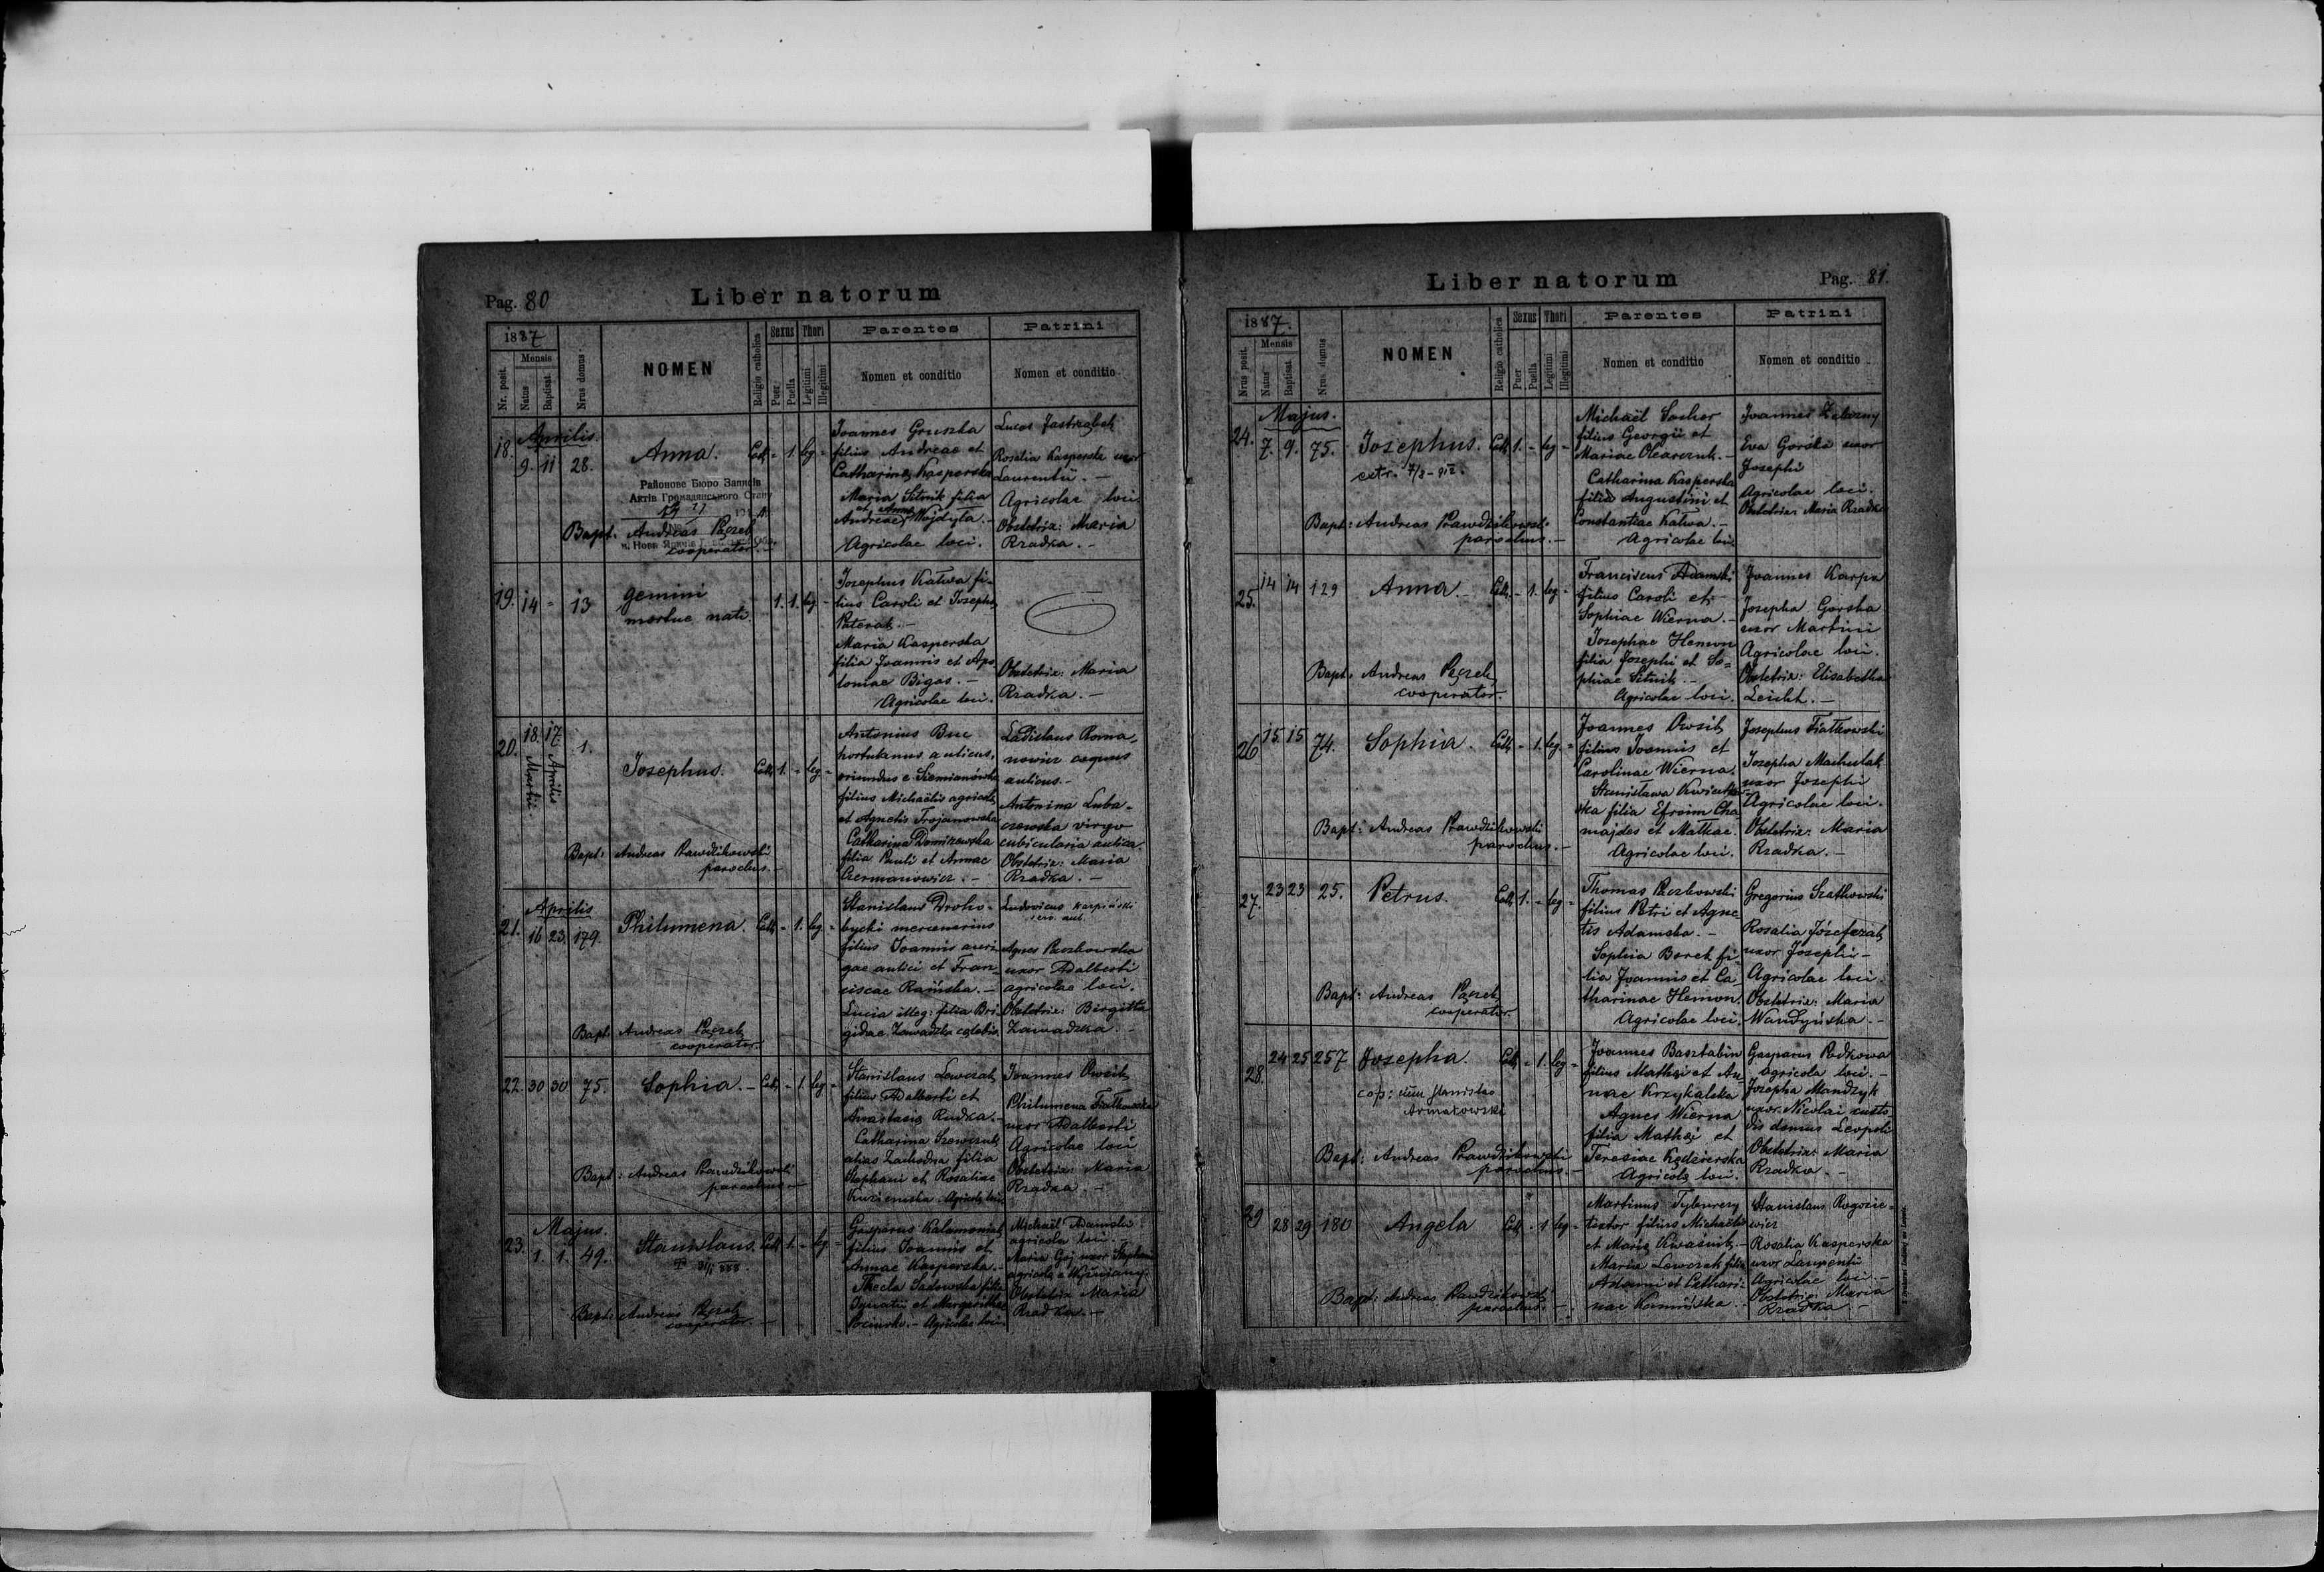 Pag. 80
Liber natorum
1887
Mensis
Nr. posit.
Natus
Baptisat.
Nrus domus
NOMEN
Religio catholica
Sexus
Puer
Puella
Thori
Legitimi
Illegitimi
Parentes
Nomen et conditio
Patrini
Nomen et conditio
Aprilis
18. 9. 11 28. Anna. Cath - 1. leg. -
Районове Бюро Записів
Актів Громадянського Стану
Bapt: Andreas Pączek
cooperator.
Joannes Gruszka
filius Andreae et
Catharinae Kasperska
Maria Sitnik filia
et Anna
Andreae Wojdyła.
Agricolae loci.
Lucas Jastrząbek
Rosalia Kasperska uxor
Laurentii. -
Agricolae loci
Obstetrix: Maria
Rzadka. -
19. 14 - 13 gemini
mortue nati
1. 1. leg. -
Josephus Kalwa fi-
lius Caroli et Josephae
Paterak. -
Maria Kasperska
filia Joannis et Apo-
loniae Bigas. -
Agricolae loci.
Obstetrix: Maria
Rzadka. -
20. 18. 17. 1. Josephus. Cath 1. - leg. -
Martii.
Aprilis
Bapt: Andreas Prawdzikowski
parochus. -
Antonius Buc
hortulanus aulicus,
oriundus e Siemianówka
filius Michaëlis agricolae
et Agnetis Trojanowska
Catharina Domiszewska
filia Pauli et Annae
Czermanowicz. -
Ladislaus Roma-
nowicz coquus
aulicus. -
Antonina Luba-
czewska virgo
cubicularia aulica.
Obstetrix: Maria
Rzadka. -
Aprilis
21. 16 23. 179. Philumena. Cath - 1. leg. -
Bapt: Andreas Pączek
cooperator.
Stanislaus Droho-
bycki mercenarius
filius Joannis auri-
gae aulici et Fran-
ciscae Raińska. -
Lucia illeg: filia Bri-
gidae Zawadzka coelebis.
Ludovicus Karpiński
serv. aul.
Agnes Paczkowska
uxor Adalberti
agricolae loci.
Obstetrix: Birgitta
Zawadzka. -
22. 30 30 75. Sophia. - Cath - 1. leg -
Bapt: Andreas Prawdzikowski
parochus. -
Stanislaus Lewczak
filius Adalberti et
Anastasiae Rudka. -
Catharina Szewczuk
alias Zachodna filia
Stephani et Rosaliae
Kuziemska. Agricolae loci
Joannes Owsik
Philumena Fiałkowska
uxor Adalberti
Agricolae loci
Obstetrix: Maria
Rzadka. -
Majus.
23. 1. 1. 49. Stanislaus. Cath 1. - leg. -
Bapt: Andreas Pączek
cooperator. -
Gasparus Kalamoniak
filius Joannis et
Annae Kasperska. -
Thecla Sadowska filia
Ignatii et Margarithae
Agricolae loci.
Michaël Adamski
agricola loci.
Maria Gaj uxor Stephani
agricolae e Wyżniany.
Obstetrix Maria
Rzadka. -
Liber natorum
Pag. 81.
1887.
Mensis
Nrus posit.
Natus
Baptisat.
Nrus domus
NOMEN
Religio catholica
Sexus
Puer
Puella
Thori
Legitimi
Illegitimi
Parentes
Nomen et conditio
Patrini
Nomen et conditio
Majus.
24. 7. 9. 75. Josephus. Cath 1. - leg -
Bapt: Andreas Prawdzikowski
parochus. -
Michaël Socher
filius Georgii et
Mariae Olearczuk. -
Catharina Kasperska
filia Augustini et
Constantiae Kalwa. -
Agricolae loci
Joannes Żelazny
Eva Gorska uxor
Josephi
Agricolae loci.
Obstetrix: Maria Rzadka
25. 14 14 129 Anna. - Cath. - 1. leg -
Bapt: Andreas Pączek
cooperator.
Franciscus Adamski
filius Caroli et
Sophiae Wierna. -
Josephae Hemon
filia Josephi et So-
phiae Sitnik. -
Agricolae loci.
Joannes Karpa
Josepha Gorska
uxor Martini
Agricolae loci.
Obstetrix: Elisabetha
Leicht. -
26 15. 15 74. Sophia. Cath - 1. leg. -
Bapt: Andreas Prawdzikowski
parochus. -
Joannes Owsik
filius Joannis et
Carolinae Wierna.
ska filia Efroim Cha
majdes et Malkae.
Agricolae loci.
Josephus Fiałkowski
Josepha Machulak
uxor Josephi
Agricolae loci.
Obstetrix: Maria
Rzadka. -
27. 23 23 25. Petrus. Cath 1. - leg -
Bapt: Andreas Pączek
cooperator
Thomas Paczkowski
filius Petri et Agne
tis Adamska. -
Sophia Borek fi-
lia Joannis et Ca-
tharinae Hemon.
Agricolae loci.
Gregorius Szatkowski
Rosalia Józefczak
uxor Josephi -
Agricolae loci.
Obstetrix: Maria
Wandyńska. -
28. 24 25 257 Josepha. Cath - 1. leg -
cop: cum Stanislao
Armatowski
Bapt: Andreas Prawdzikowski
parochus. -
Joannes Basztabin
filius Mathaei et An-
nae Krzykalska
Agnes Wierna
filia Mathaei et
Teresiae Kędzierska
Agricolae loci.
Gasparus Podkowa
agricola loci. -
Josepha Mandzyk
uxor Nicolai custo-
dis domus Leopoli
Obstetrix: Maria
Rzadka. -
29 28 29 180 Angela Cath - 1 leg -
Bapt: Andreas Prawdzikowski
parochus. -
Martinus Tyburczy
textor filius Michaëlis
et Mariae Kwaśnik. -
Maria Lewczak filia
Adami et Cathari-
nae Kamińska. -
Stanislaus Rogozie-
wicz
Rosalia Kasperska
uxor Laurentii
Agricolae loci -
Obstetrix: Maria
Rzadka. -